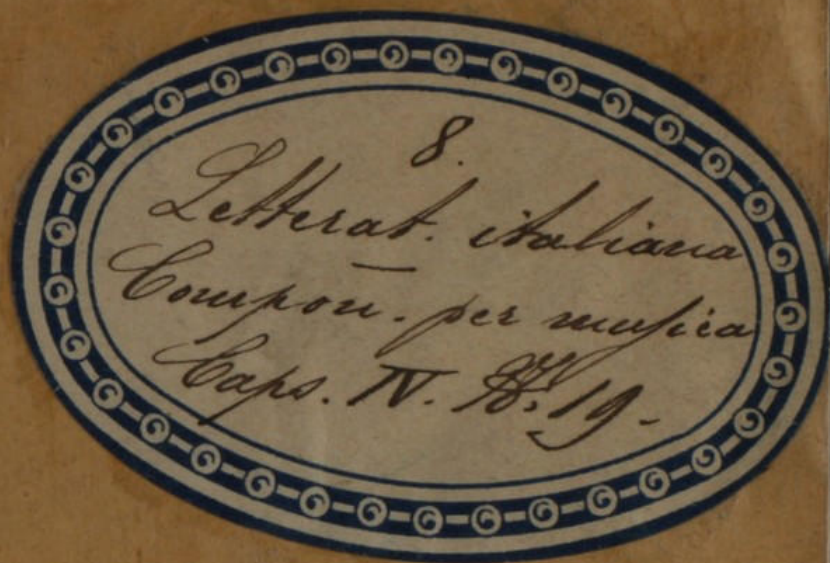 8.
Letterat. italiana
—
Compon. per musica
Caps. IV. N: 19.